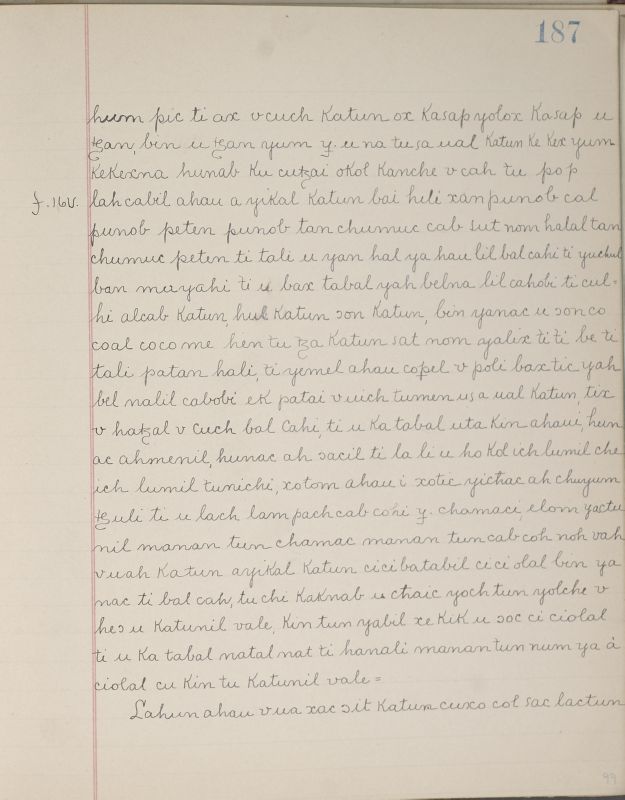 187
hum pic ti ax v cuch Katun ox Kasap yolox Kasap u
ꜩan, bin u ꜩan yum y. u na tu sa ual Katun Ke Kex yum
KeKexna hunab Ku cuꜩai oKol Kanche v cah tu pop
f. 16v. lahcabil ahau ayiKal Katun bai heli xan punob cal
punob peten punob tan chumuc cab sut nom halal tan
chumuc peten ti tali u yan hal ya hau lil bal cahi ti yuchul
ban mayahi ti u bax tabal yah belna lil cahobi ti cul=
hi alcab Katun, hul Katun ɔon Katun, bin yanac u ɔon co
coal coco me hen tu ꜩa Katun sat nom yalix ti ti be ti
tali patan hali, ti yemel ahau copel v poli bax tic yah
bel nalil cabobi eK patai v uich tumen us a ual Katun, tix
v haꜩal v cuch bal cahi, ti u Ka tabal uta Kin ahaui, hun
ac ahmenil, hunac ah ɔacil ti la li u ho Kol ich lumil che
ich lumil tunichi, xotom ahau i xotic yichac ah chuyum
ꜩuli ti u lach lam pach cab cohi y. chamaci, elom yactu
nil manan tun chamac manan tun cab coh noh vah
v uah Katun ayiKal Katun cici batabil ci ci olal bin ya
nac ti bal cah, tu chi KaKnab u chaic yoch tun yolche v
heɔ u Katunil vale, Kin tun yabil xe KiK u ɔoc ci ciolal
ti u Ka tabal natal nat ti hanali manan tun num ya à
ciolal cu Kin tu Katunil vale =
Lahun ahau v ua xac ɔit Katun cuxo col sac lactun
99